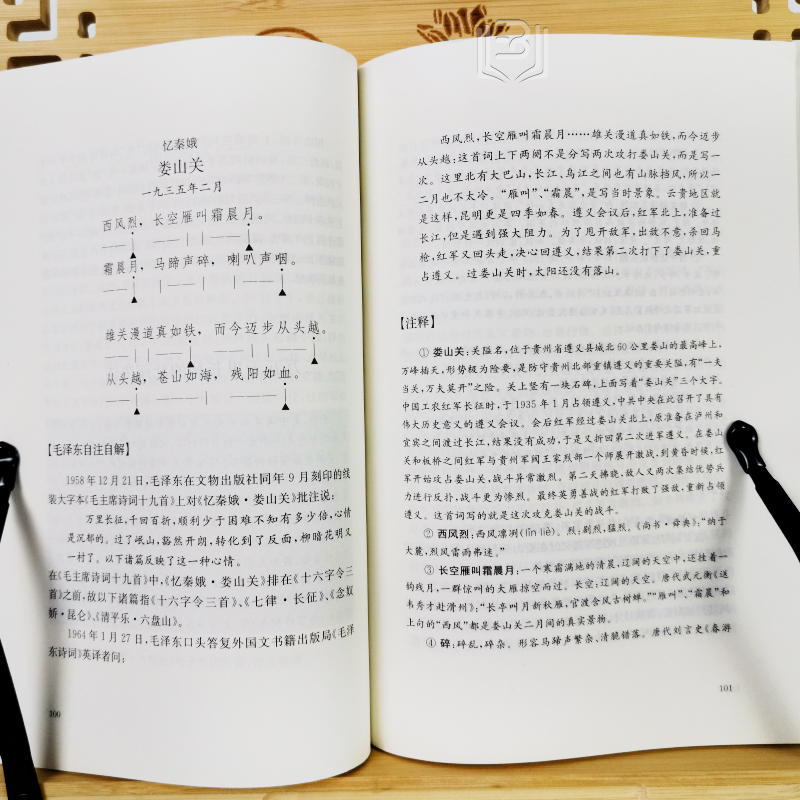 忆秦娥
娄山关
一九三五年二月
西风烈，长空雁叫霜晨月。
霜晨月，马蹄声碎，喇叭声咽。
雄关漫道真如铁，而今迈步从头越。
从头越，苍山如海，残阳如血。
【毛泽东自注自解】
1958年12月21日，毛泽东在文物出版社同年9月刻印的线
装大字本《毛主席诗词十九首》上对《忆秦娥·娄山关》批注说：
万里长征，千回百折，顺利少于困难不知有多少倍，心情
是沉郁的。过了岷山，豁然开朗，转化到了反面，柳暗花明又
一村了。以下诸篇反映了这一种心情。
在《毛主席诗词十九首》中，《忆秦娥·娄山关》排在《十六字令三
首》之前，故以下诸篇指《十六字令三首》、《七律·长征》、《念奴
娇·昆仑》、《清平乐·六盘山》。
1964年1月27日，毛泽东口头答复外国文书籍出版局《毛泽
东诗词》英译者问：
100
西风烈，长空雁叫霜晨月……雄关漫道真如铁，而今迈步
从头越：这首词上下两阕不是分写两次攻打娄山关，而是写一
次。这里北有大巴山，长江、乌江之间也有山脉挡风，所以一
二月也不太冷。“雁叫”、“霜晨”，是写当时景象。云贵地区就
是这样，昆明更是四季如春。遵义会议后，红军北上，准备过
长江，但是遇到强大阻力。为了甩开敌军，出敌不意，杀回马
枪，红军又回头走，决心回遵义，结果第二次打下了娄山关，重
占遵义。过娄山关时，太阳还没有落山。
【注释】
① 娄山关：关隘名，位于贵州省遵义县城北60公里娄山的最高峰上，
万峰插天，形势极为险要，是防守贵州北部重镇遵义的重要关隘，有“一夫
当关，万夫莫开”之险。关上竖有一块石碑，上面写着“娄山关”三个大字。
中国工农红军长征时，于1935年1月占领遵义，中共中央在此召开了具有
伟大历史意义的遵义会议。会后红军经过娄山关北上，原准备在泸州和
宜宾之间渡过长江，结果没有成功，于是又折回第二次进军遵义。在娄山
关和板桥之间红军与贵州军阀王家烈部一个师展开激战，到黄昏时候，红
军开始攻占娄山关，战斗异常激烈。第二天拂晓，敌人又两次集结优势兵
力进行反扑，战斗更为惨烈。最终英勇善战的红军打败了强敌，重新占领
遵义。这首词写的就是这次攻克娄山关的战斗。
② 西风烈：西风凛冽（lǐn liè）。烈：剧烈，猛烈。《尚书·舜典》：“纳于
大麓，烈风雷雨弗迷。”
③ 长空雁叫霜晨月：一个寒霜满地的清晨，辽阔的天空中，还挂着一
钩残月，一群惊叫的大雁掠空而过。长空：辽阔的天空。唐代武元衡《送
韦秀才赴滑州》：“长亭叫月新秋雁，官渡含风古树蝉。”“雁叫”、“霜晨”和
上句的“西风”都是娄山关二月间的真实景物。
④ 碎：碎乱，碎杂。形容马蹄声繁杂、清脆错落。唐代刘言史《春游
101